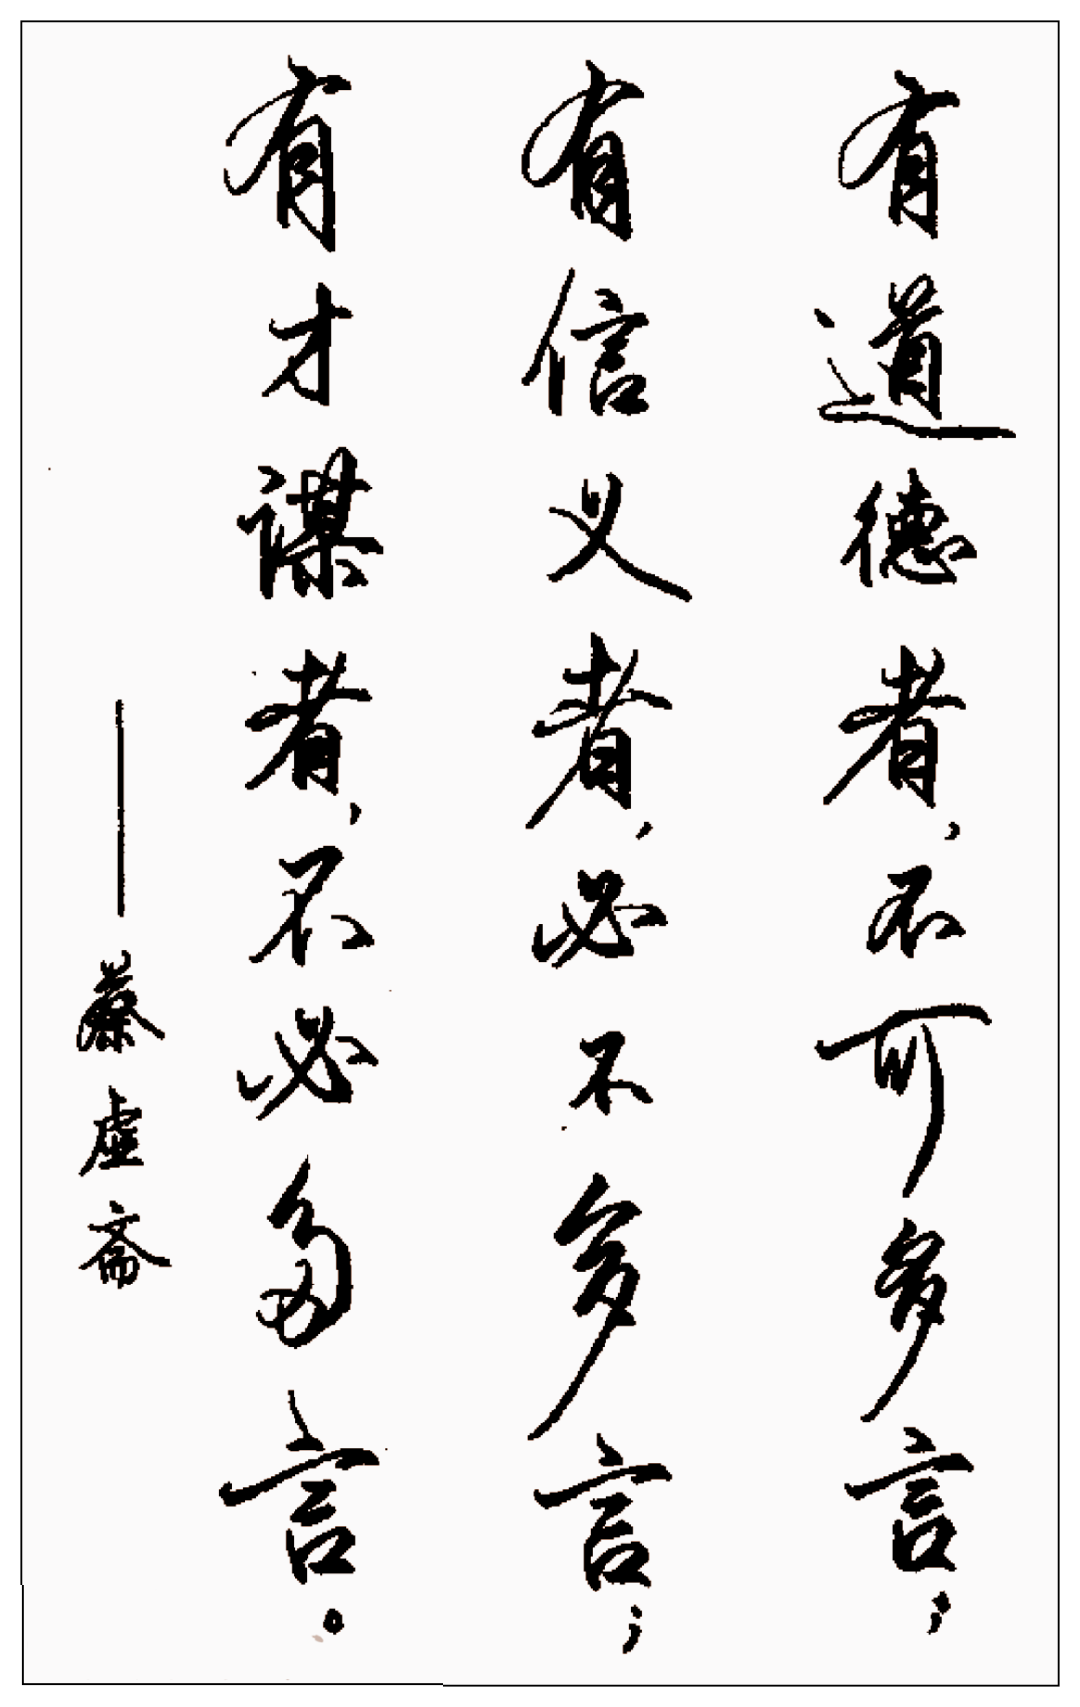 有道德者，不可多言；
有信义者，必不多言；
有才谋者，不必多言。
——蔡虚斋